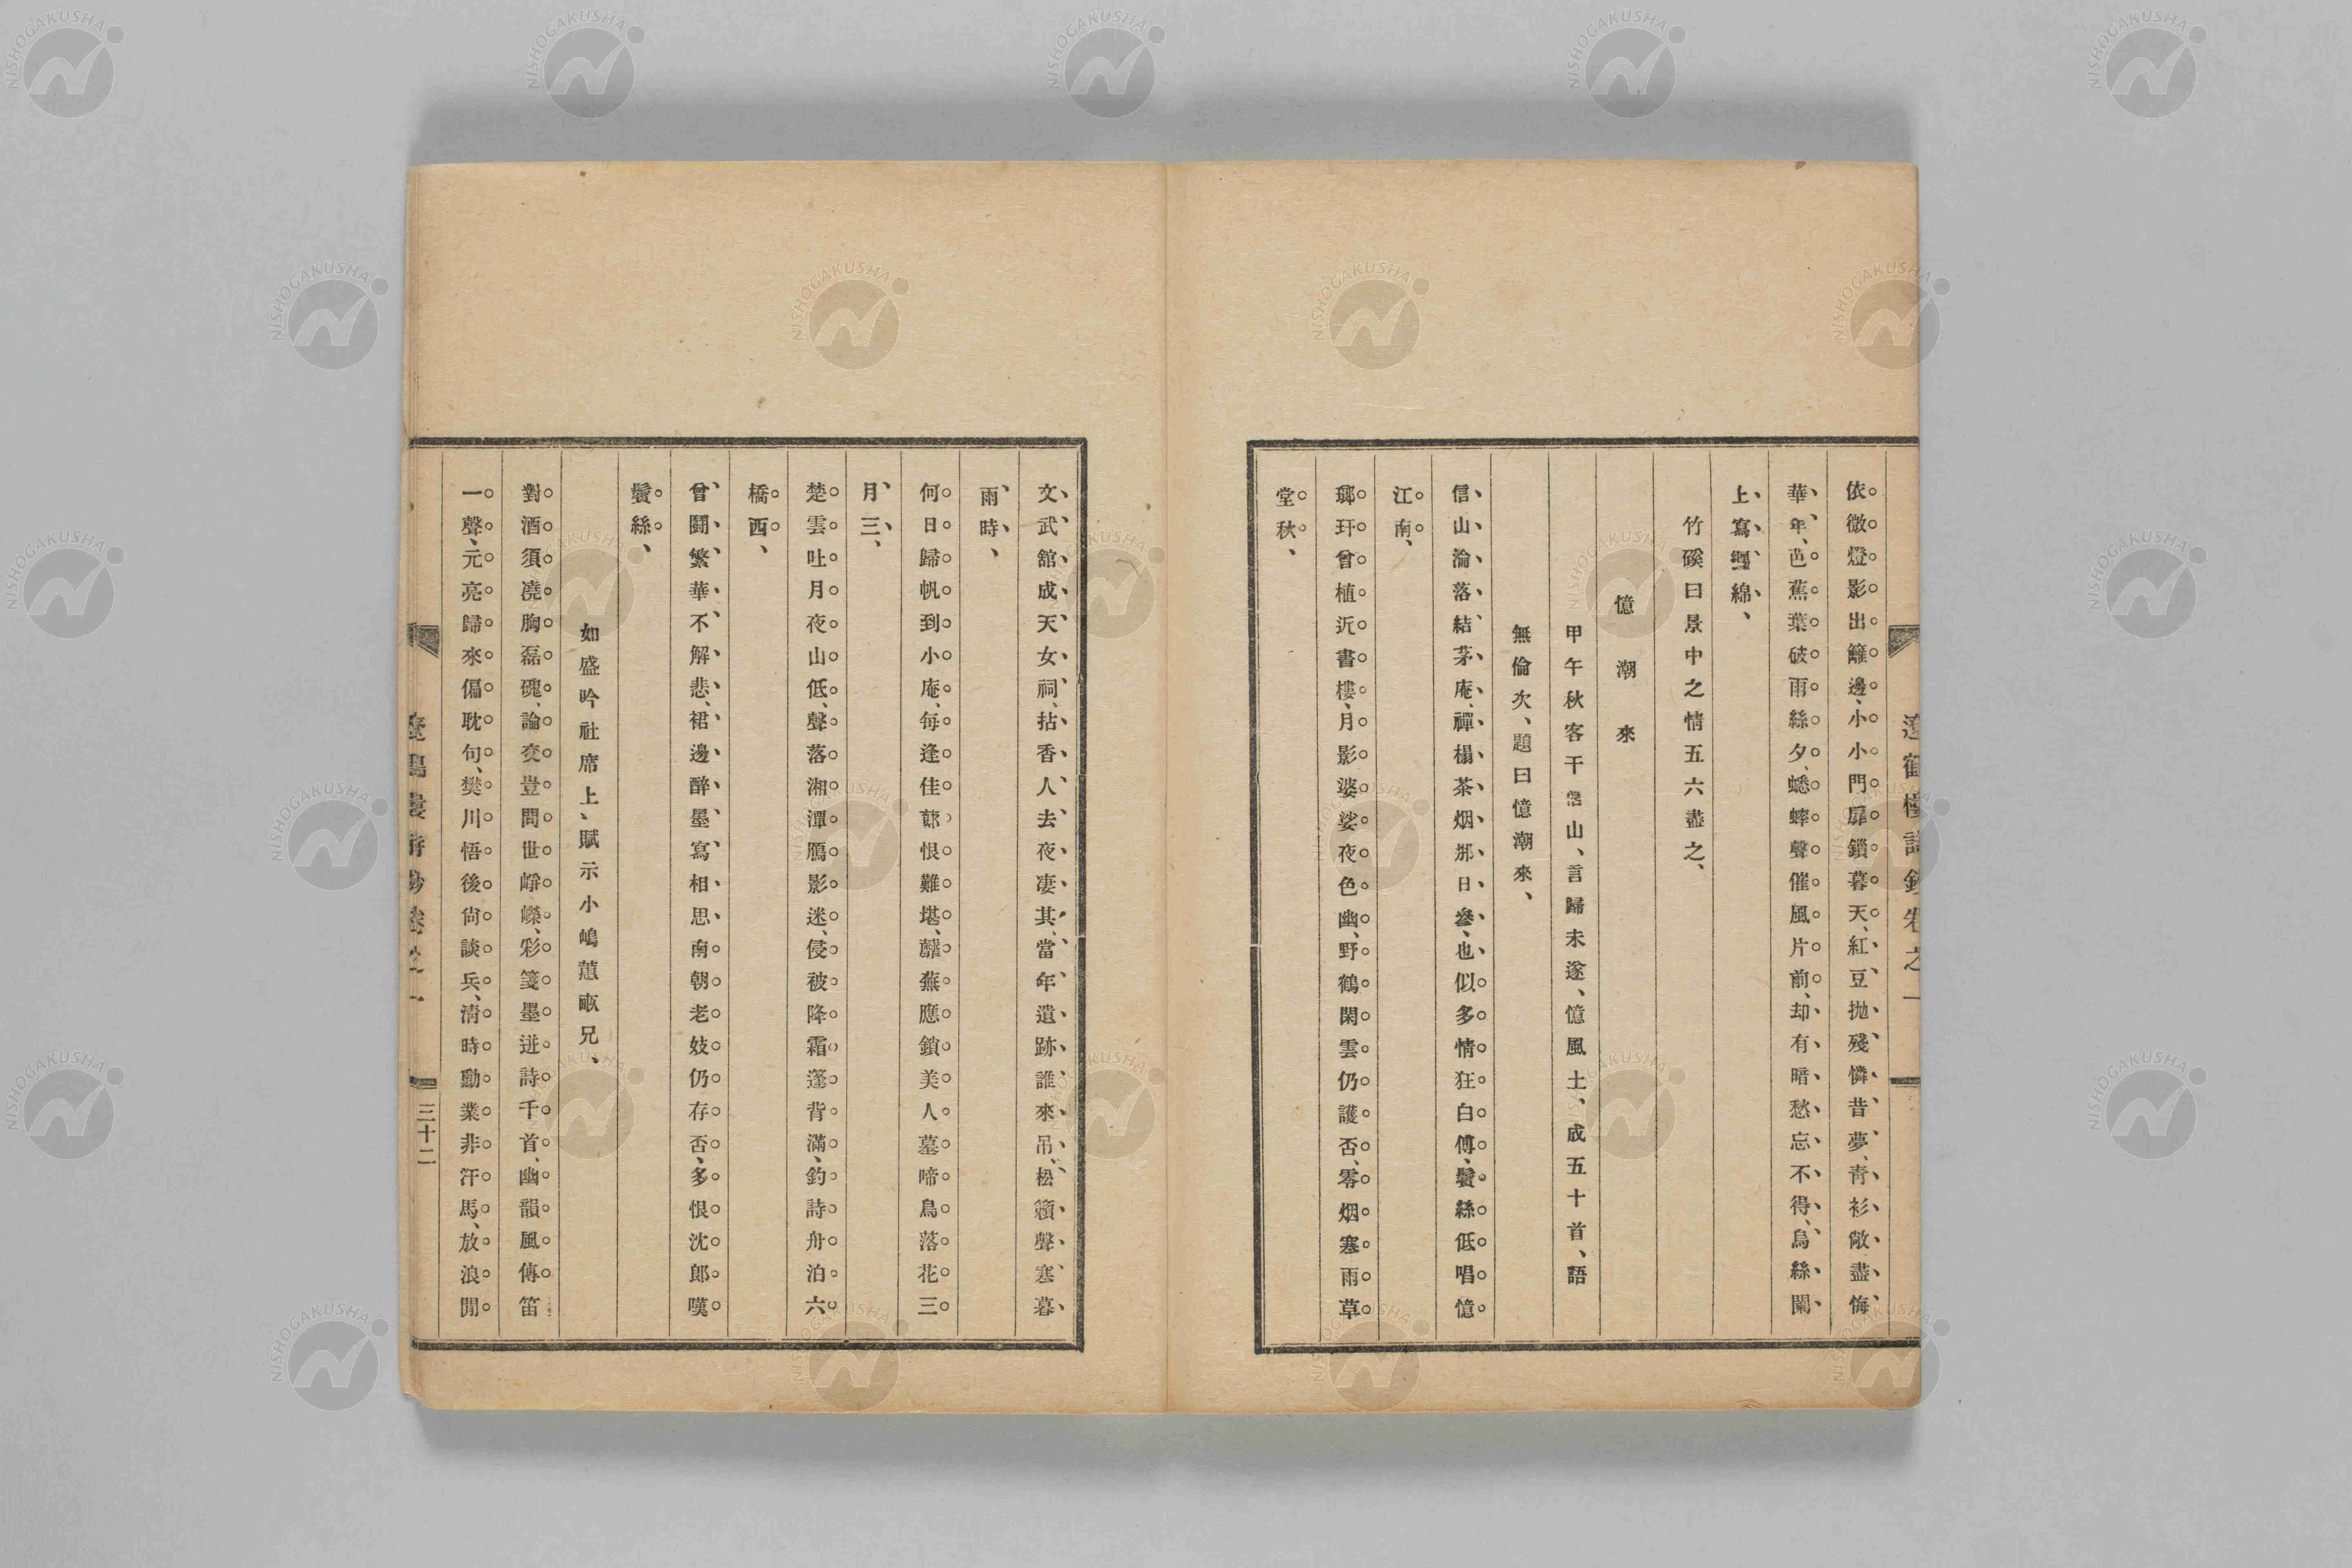 依微燈影出籬邊、小小門扉鎖暮天、紅豆拋殘憐昔夢、靑衫敞盡悔
華年、芭蕉葉破雨絲夕、蟋蟀聲催風片前、却有暗愁忘不得、烏絲闌
上寫纒綿、
竹磎曰景中之情五六盡之、
憶潮來
甲午秋客干山、言歸未遂、憶風土、成五十首、語
無倫次、題曰憶潮來、
信山淪落結茅庵、禪榻茶烟那日參、也似多情狂白傅、鬢絲低唱憶
江南、
瑯玕曾植近書樓、月影婆娑夜色幽、野鶴閑雲仍護否、零烟塞雨草
堂秋、
遼鶴樓詩鈔卷之一
文武舘成天女祠、拈香人去夜凄其、當年遺跡誰來吊、松籟聲塞暮
雨時、
何日歸帆到小庵、每逢佳恨難堪、蘼蕪應鎖美人墓、啼鳥落花三
月三、
楚雲吐月夜山低、聲落湘潭鴈影迷、侵被降霜篷背滿、釣詩舟泊六
橋西、
曾鬪繁華不解悲、裙邊醉墨寫相思、南朝老妓仍存否、多恨沈郎嘆
鬢絲、
如盛吟社席上、賦示小嶋蕙畝兄、
對酒須澆胸磊磈、論交豈問世崢嶸、彩箋墨迸詩千首、幽韻風傳笛
一聲、元亮歸來偏耽句、樊川悟後尙談兵、淸時勳業非汗馬、放浪閒
三十二